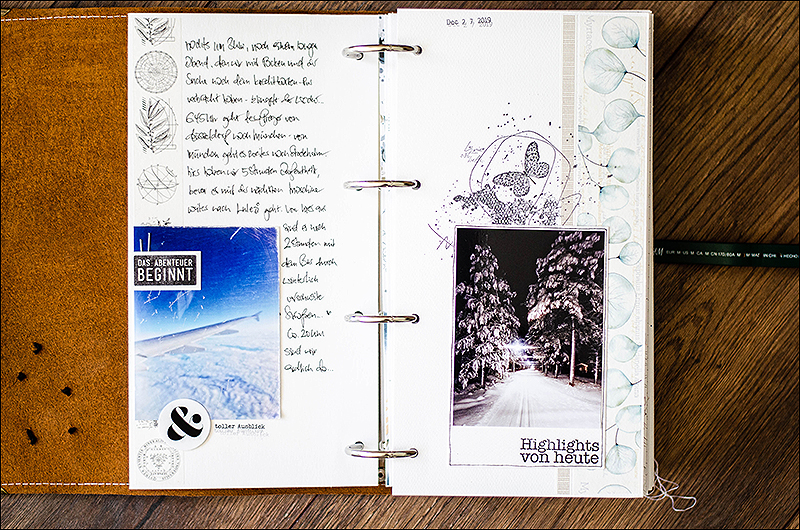 nachts um 2 Uhr, nach einem langen
Abend, den wir mit Packen und der
Suche nach dem
verbracht haben - klingelt der Wecker...
6:45 Uhr geht der Flieger von
Düsseldorf nach München - von
München geht es weiter nach Stockholm.
Hier haben wir 5 Stunden Aufenthalt,
bevor es mit der nächsten Maschine
weiter nach Luleå geht. Von hier aus
sind es noch
2 Stunden mit
dem Bus durch
winterlich
verschneite
Straßen...
Ca. 20 Uhr
sind wir
endlich da...
DAS ABENTEUER
BEGINNT
&
toller Ausblick
Dec 2, 7, 2019
Highlights
von heute